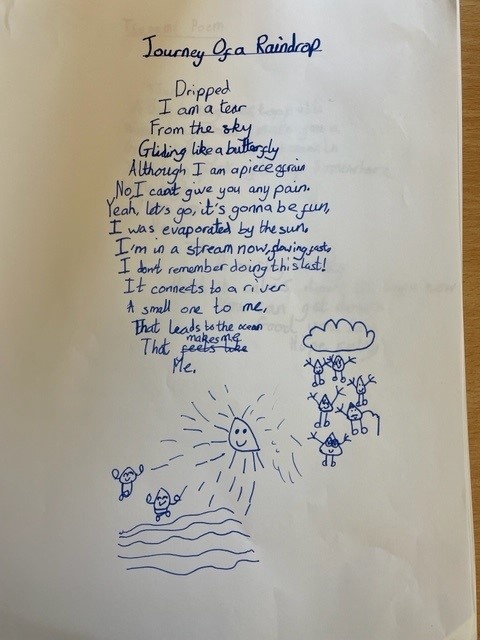 Journey Of a Raindrop
Dripped
I am a tear
From the sky
Gliding like a butterfly
Although I am a piece of rain
No, I can't give you any pain.
Yeah, let's go, it's gonna be fun,
I was evaporated by the sun.
I'm in a stream now, flowing fast,
I don't remember doing this last!
It connects to a river
A small one to me,
That leads to the ocean
That makes me
Me.